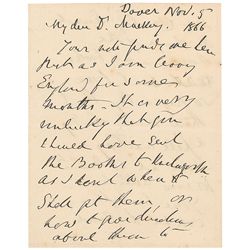 Dover Nov. 5
1866
My dear D. Mackay,
Your note finds me here
Just as I am leaving
England for some
months - It is very
unlucky that you
should have sent
the Books to
as I know when I
shall get them, or
how to give directions
about them to